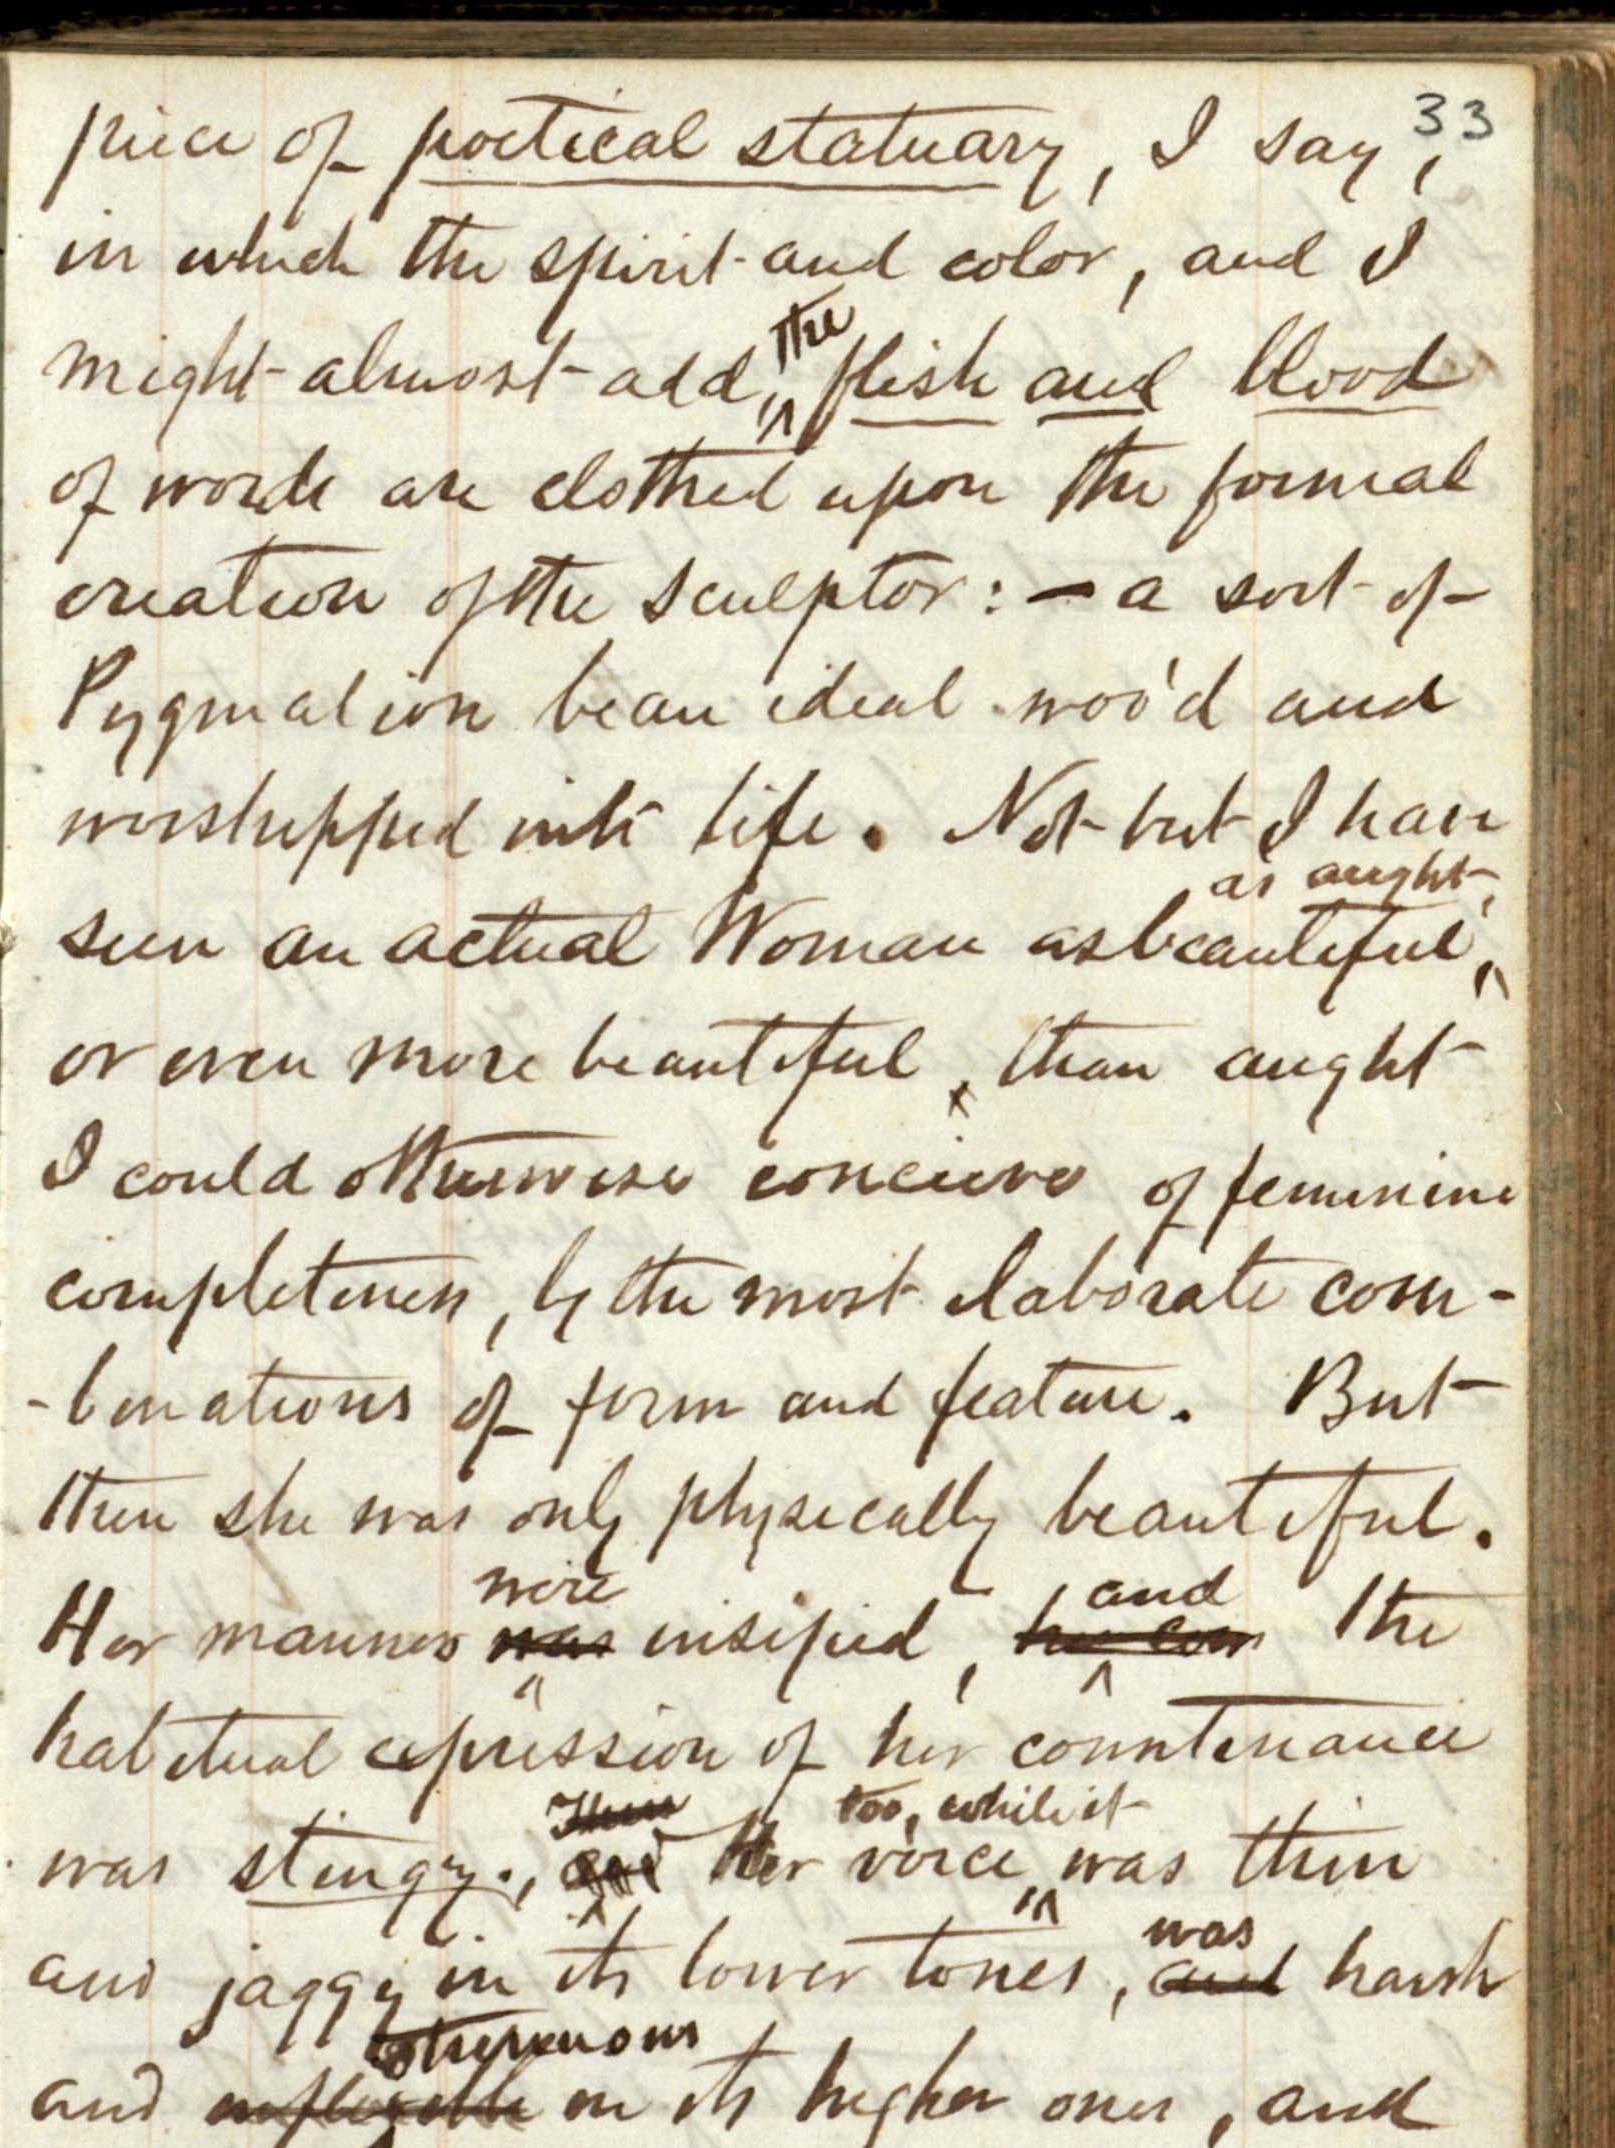 33
piece of poetical statuary, I say,
in which the spirit and color, and I
might almost add, the flesh and blood
of words are clothed upon the formal
creation of the sculptor: — a sort of
Pygmalion beau ideal woo'd and
worshipped into life. Not but I have
as aught,
seen an actual Woman as beautiful,
or even more beautiful, than aught
I could otherwise concieve of feminine
completeness, by the most elaborate com-
-binations of form and feature. But
then she was only physically beautiful.
were and
Her manners was insipid, her coun the
habitual expression of her countenance
Then too, while it
was stingy., and Her voice, was thin
was
and jaggy in its lower tones, and harsh
strenuous
and inflexible in its higher ones, and